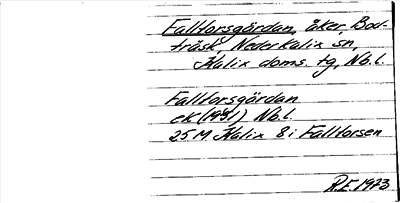 Fallforsgördan, åker, Bod-
träsk, Nederkalix sn,
Kalix doms. tg, Nb.l.
Fallforsgördan
ek (1951) Nb.l.
25 M Kalix 8 i Fallforsen
R.E. 1973